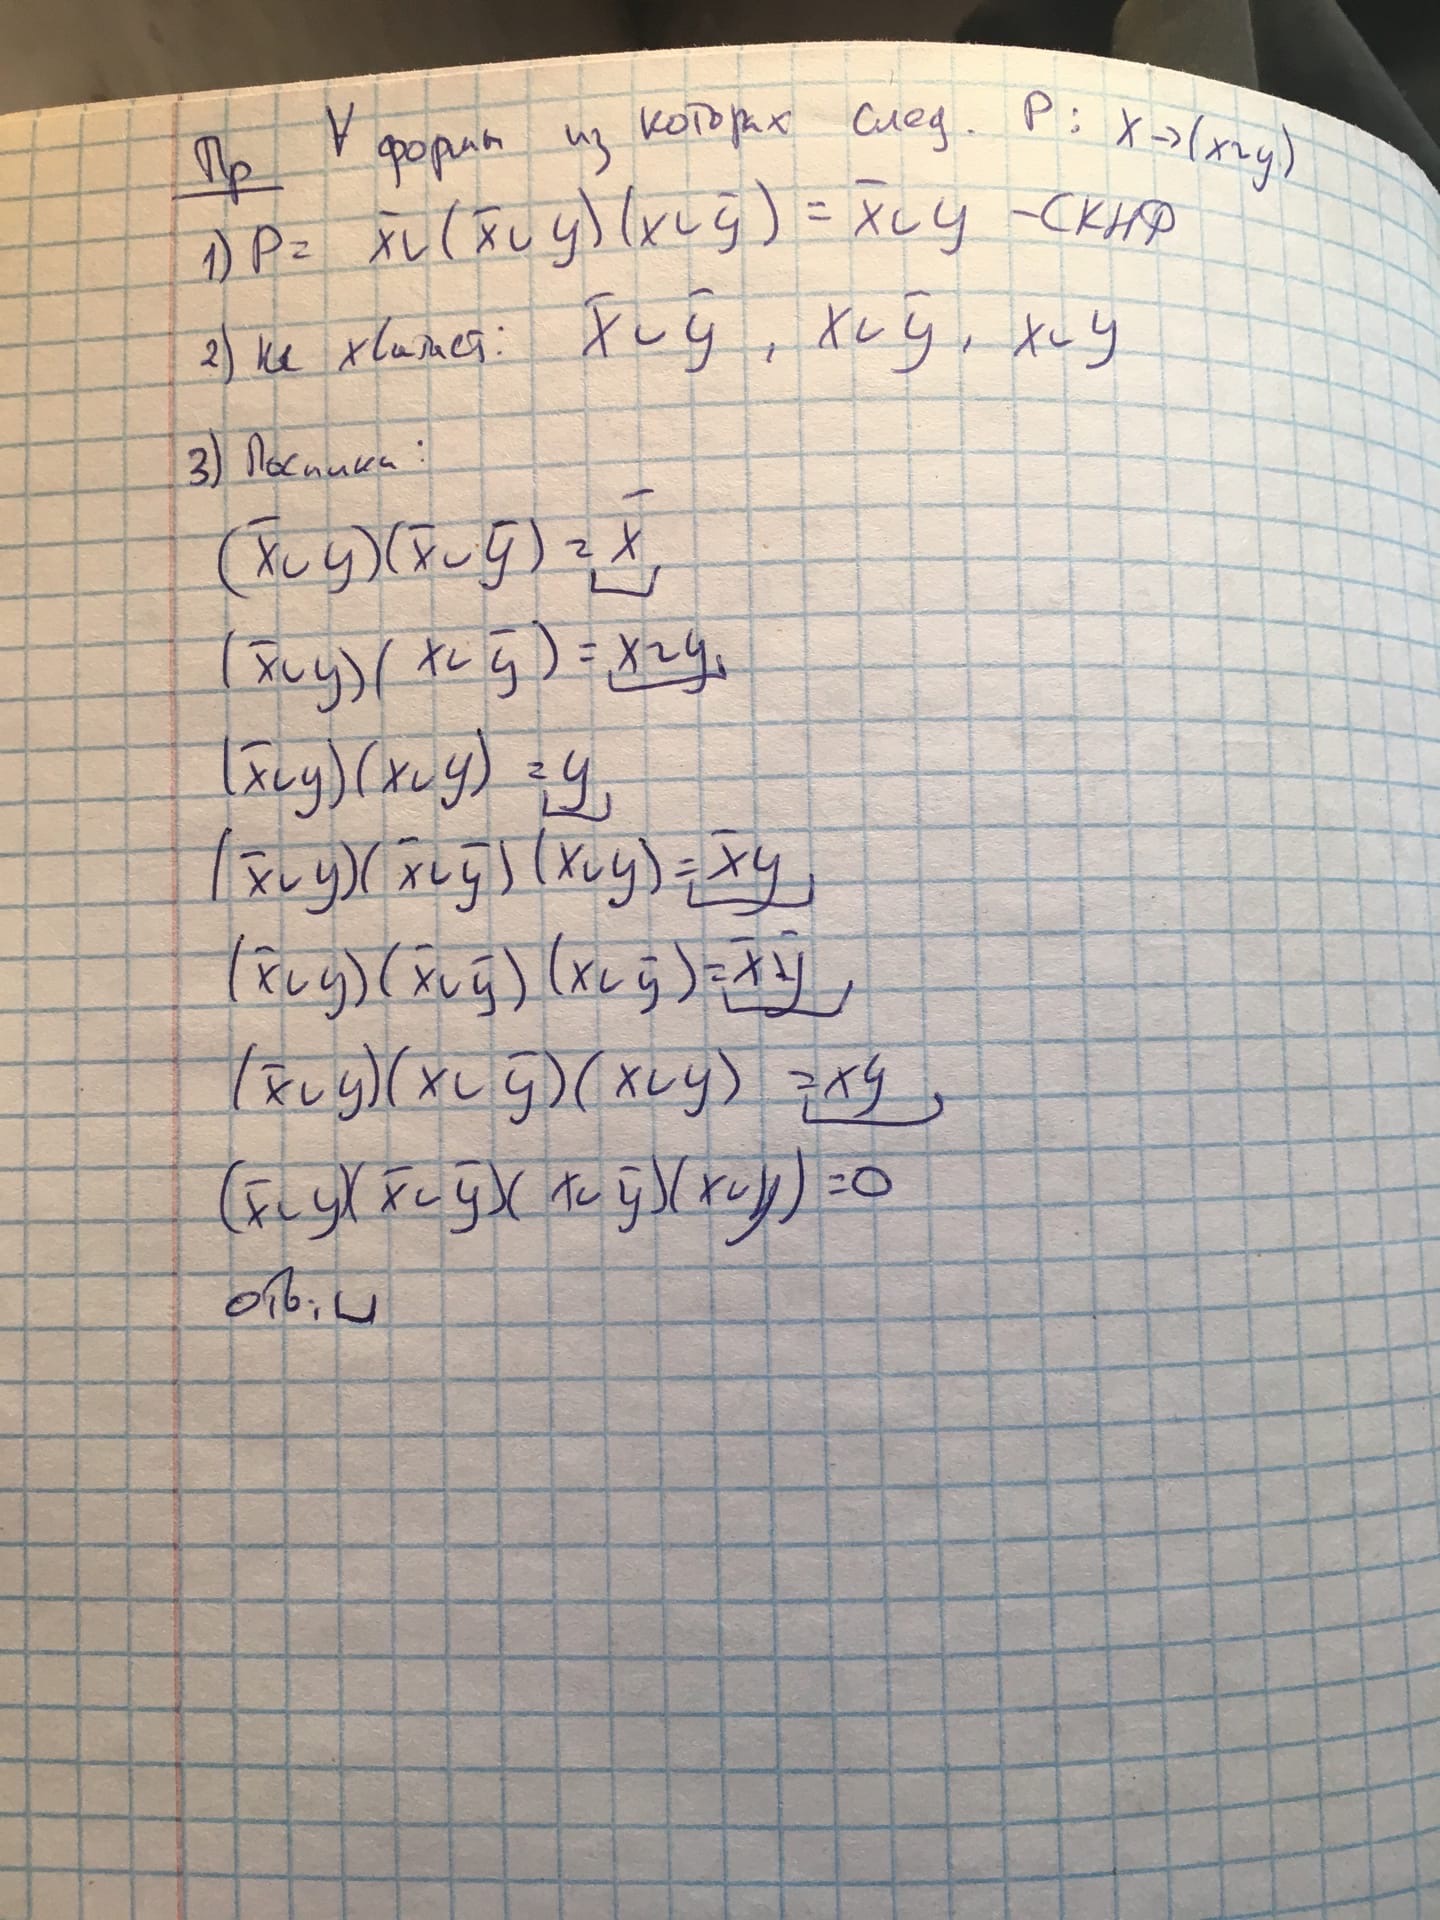 Пр ∀ формы из которых след. P: x→(x~y)
1) P= x̄∪(x̄∪y)(x∪ȳ) = x̄∪y -СКНФ
2) Не хватает: x̄∪ȳ, x∪ȳ, x∪y
3) Посылки:
(x̄∪y)(x̄∪ȳ) = x̄,
(x̄∪y)(x∪ȳ) = x~y,
(x̄∪y)(x∪y) = y,
(x̄∪y)(x̄∪ȳ)(x∪y) = x̄y,
(x̄∪y)(x̄∪ȳ)(x∪ȳ) = x̄ȳ,
(x̄∪y)(x∪ȳ)(x∪y) = xy,
(x̄∪y)(x̄∪ȳ)(x∪ȳ)(x∪y) = 0
отв: ⌴